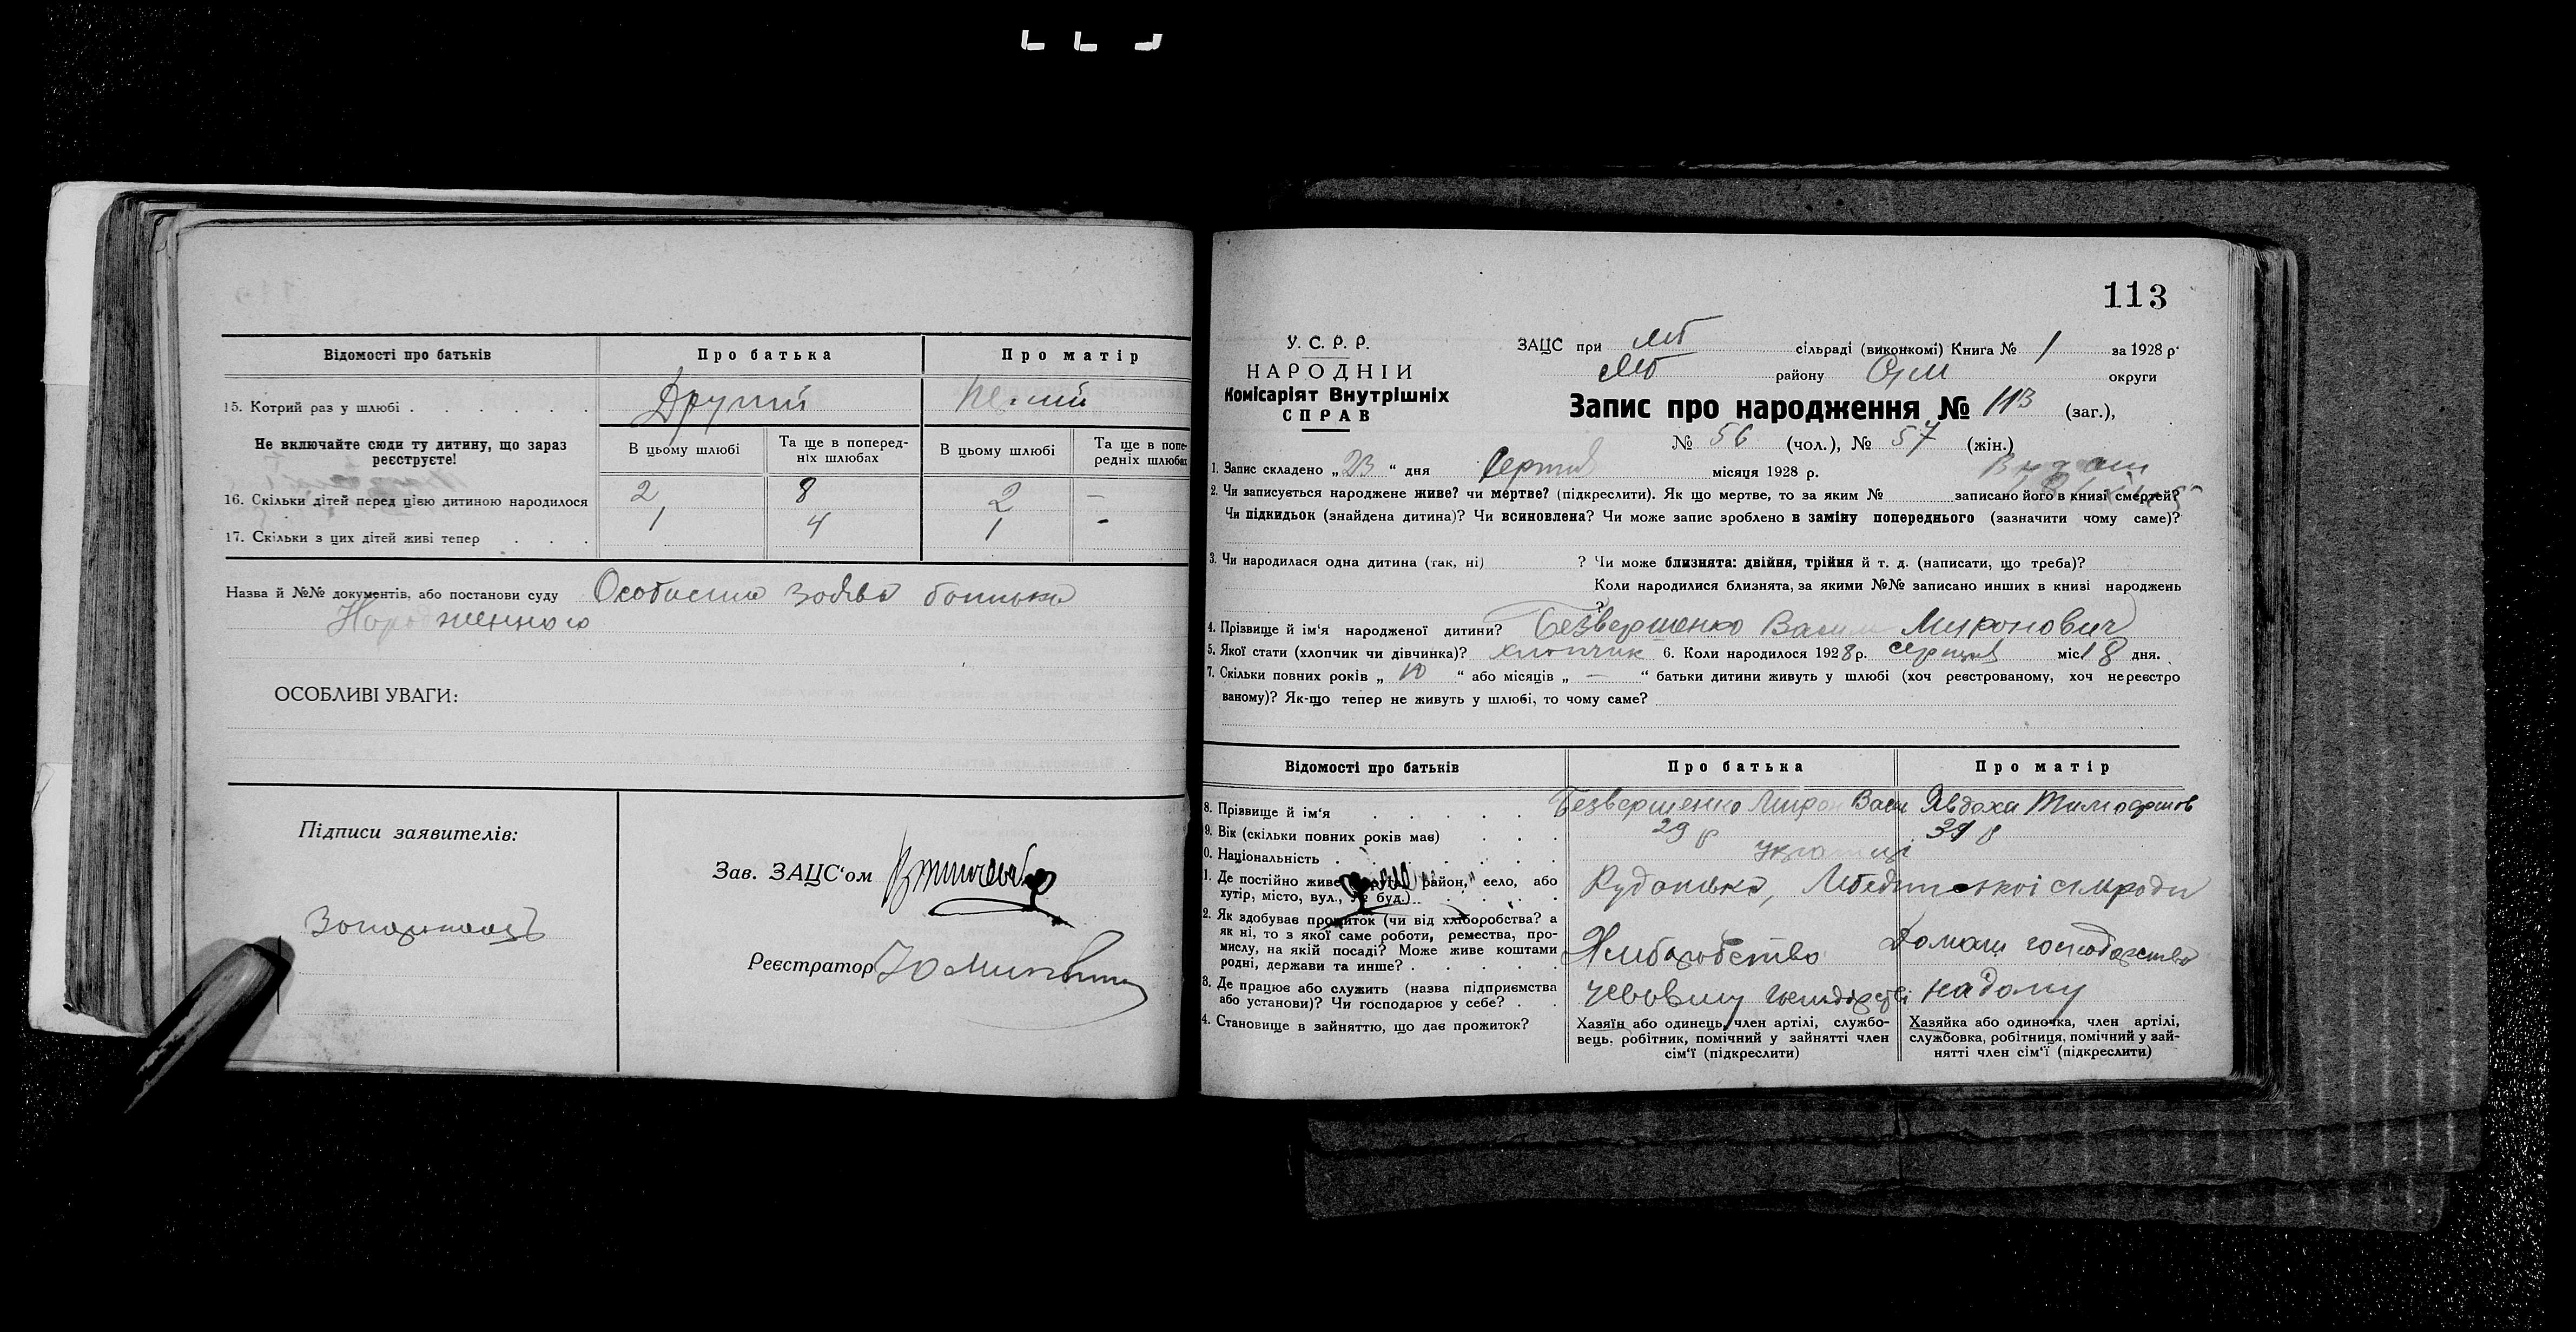 Відомості про батьків
Про батька
Про матір
15. Котрий раз у шлюбі
Другий
Не включайте сюди ту дитину, що зараз реєструєте!
В цьому шлюбі
Та ще в поперед-
ніх шлюбах
В цьому шлюбі
Та ще в попе-
редніх шлюбах
16. Скільки дітей перед цією дитиною народилося
2
8
2
-
17. Скільки з цих дітей живі тепер
1
4
1
-
Назва й №№ документів, або постанови суду Особиста заява батька
Народженного
ОСОБЛИВІ УВАГИ:
Підписи заявителів:
Зав. ЗАЦС'ом
Реєстратор
113
У. С. Р. Р.
НАРОДНІЙ
Комісаріят Внутрішніх
СПРАВ
ЗАЦС при сільраді (виконкомі) Книга № 1 за 1928 р.
району округи
Запис про народження № 113 (заг.),
№ 56 (чол.), № 57 (жін.)
1. Запис складено „23“ дня серпня місяця 1928 р.
2. Чи записується народжене живе? чи мертве? (підкреслити). Як що мертве, то за яким № записано його в книзі смертей?
Чи підкидьок (знайдена дитина)? Чи всиновлена? Чи може запис зроблено в заміну попереднього (зазначити чому саме)?
3. Чи народилася одна дитина (так, ні) ? Чи може близнята: двійня, трійня й т. д. (написати, що треба)?
Коли народилися близнята, за якими №№ записано инших в книзі народжень
?
4. Прізвище й ім'я народженої дитини? Безвершенко Василь Миронович
5. Якої стати (хлопчик чи дівчинка)? хлопчик 6. Коли народилося 1928 р. серпня міс 18 дня.
7. Скільки повних років „10“ або місяців „-“ батьки дитини живуть у шлюбі (хоч реєстрованому, хоч нереєстро
ваному)? Як-що тепер не живуть у шлюбі, то чому саме?
Відомості про батьків
Про батька
Про матір
8. Прізвище й ім'я
Безвершенко Мирон Васи
Явдоха Тимофієв
9. Вік (скільки повних років має)
39 р
0. Національність
українці
1. Де постійно живе район, село, або
хутір, місто, вул., № буд.)
Лебединської сільради
2. Як здобуває прожиток (чи від хліборобства? а
як ні, то з якої саме роботи, ремества, про-
мислу, на якій посаді? Може живе коштами
родні, держави та инше?
Хліборобство
Домашн господарство
3. Де працює або служить (назва підприємства
або установи)? Чи господарює у себе?
на дому
4. Становище в зайняттю, що дає прожиток?
Хазяїн або одинець, член артілі, службо-
вець, робітник, помічний у зайнятті член
сім'ї (підкреслити)
Хазяйка або одиночка, член артілі,
службовка, робітниця, помічний у зай-
нятті член сім'ї (підкреслити)